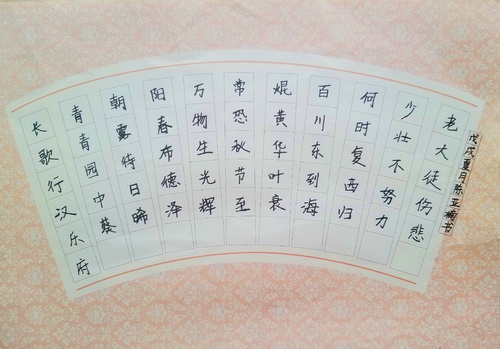 长歌行汉乐府
青青园中葵
朝露待日晞
阳春布德泽
万物生光辉
常恐秋节至
焜黄华叶衰
百川东到海
何时复西归
少壮不努力
老大徒伤悲
戊戌夏月陈亚楠书